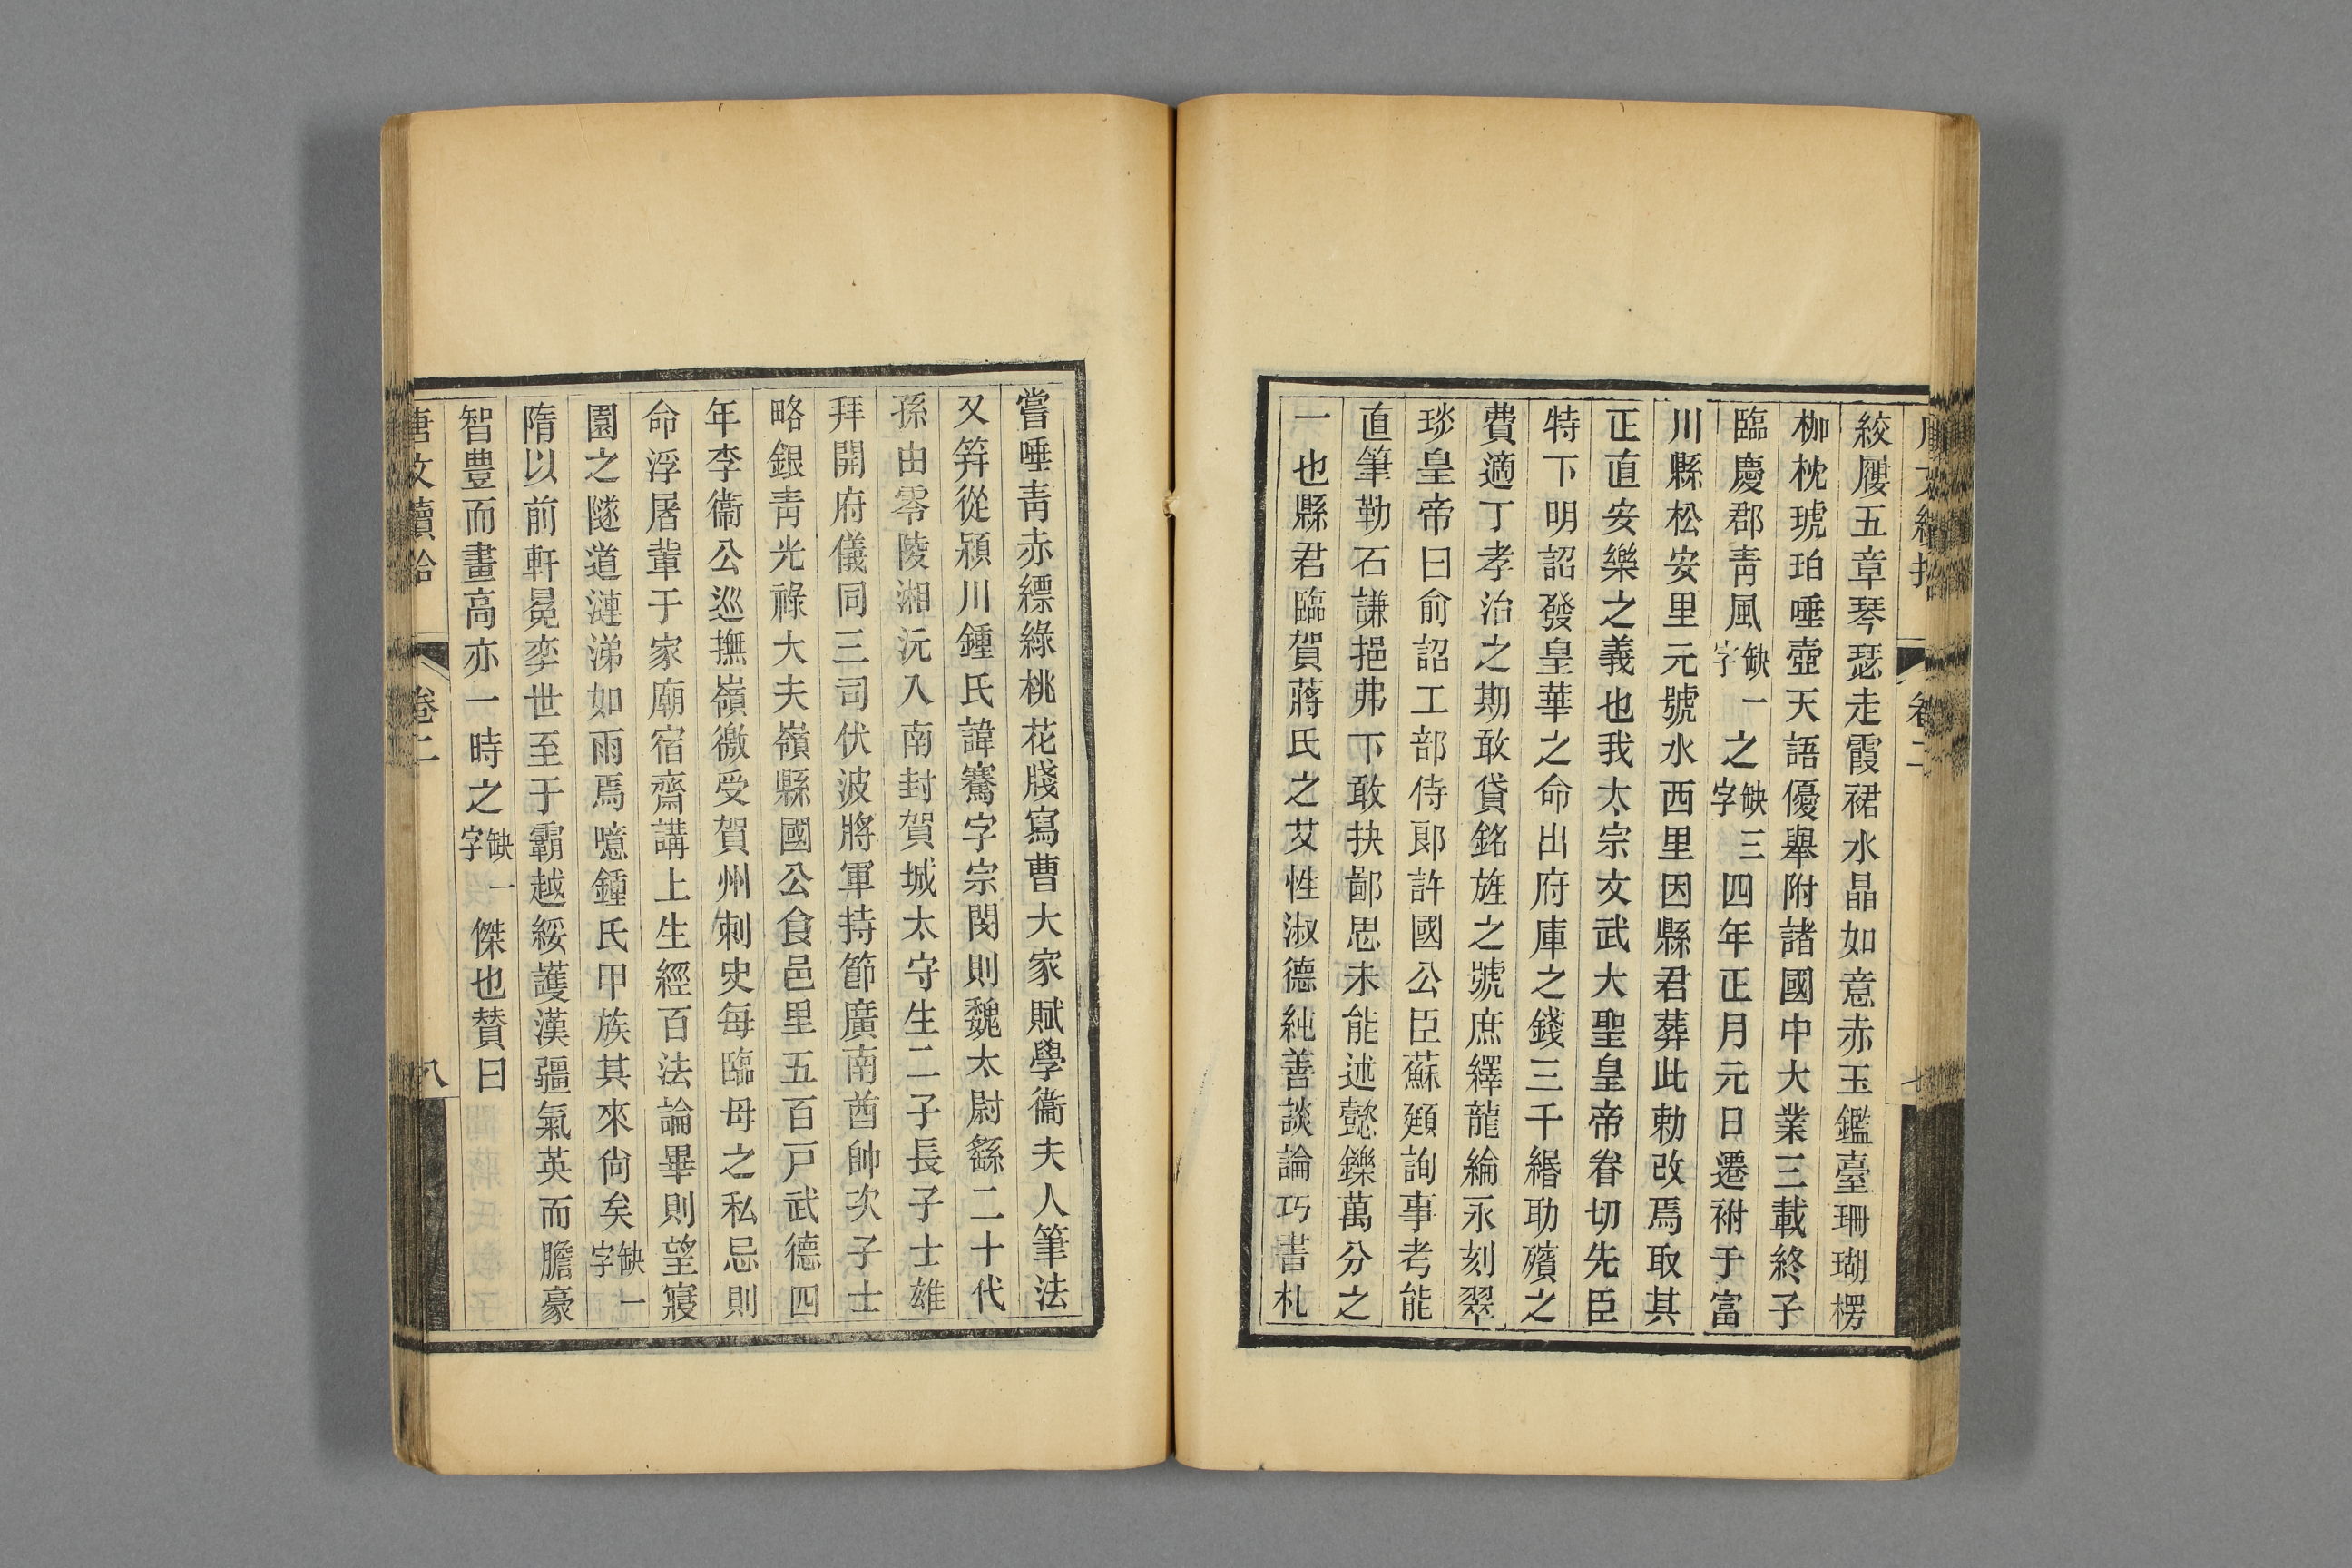 唐文續拾 卷二 七
絞履五章琴瑟走霞裙水晶如意赤玉鑑臺珊瑚楞
柳枕琥珀唾壺天語優舉附諸國中大業三載終子
臨慶郡靑風缺一字之缺三字四年正月元日遷祔于富
川縣松安里元號水西里因縣君葬此勅改焉取其
正直安樂之義也我太宗文武大聖皇帝眷切先臣
特下明詔發皇華之命出府庫之錢三千緡助殯之
費適丁孝治之期敢貸銘旌之號庶繹龍綸永刻翠
琰皇帝曰俞詔工部侍郞許國公臣蘇頲詢事考能
直筆勒石謙挹弗下敢抉鄙思未能述懿鑠萬分之
一也縣君臨賀蔣氏之艾性淑德純善談論巧書札
嘗唾靑赤縹綠桃花牋寫曹大家賦學衞夫人筆法
又笄從潁川鍾氏諱騫字宗閔則魏太尉繇二十代
孫由零陵湘沅入南封賀城太守生二子長子士雄
拜開府儀同三司伏波將軍持節廣南酋帥次子士
略銀靑光祿大夫嶺縣國公食邑里五百戸武德四
年李衞公巡撫嶺徼受賀州刺史每臨母之私忌則
命浮屠輩于家廟宿齋講上生經百法論畢則望寢
園之隧道漣涕如雨焉噫鍾氏甲族其來尙矣缺一字
隋以前軒冕奕世至于霸越綏護漢疆氣英而膽豪
智豊而畫高亦一時之缺一字傑也贊曰
唐文續拾 卷二 八